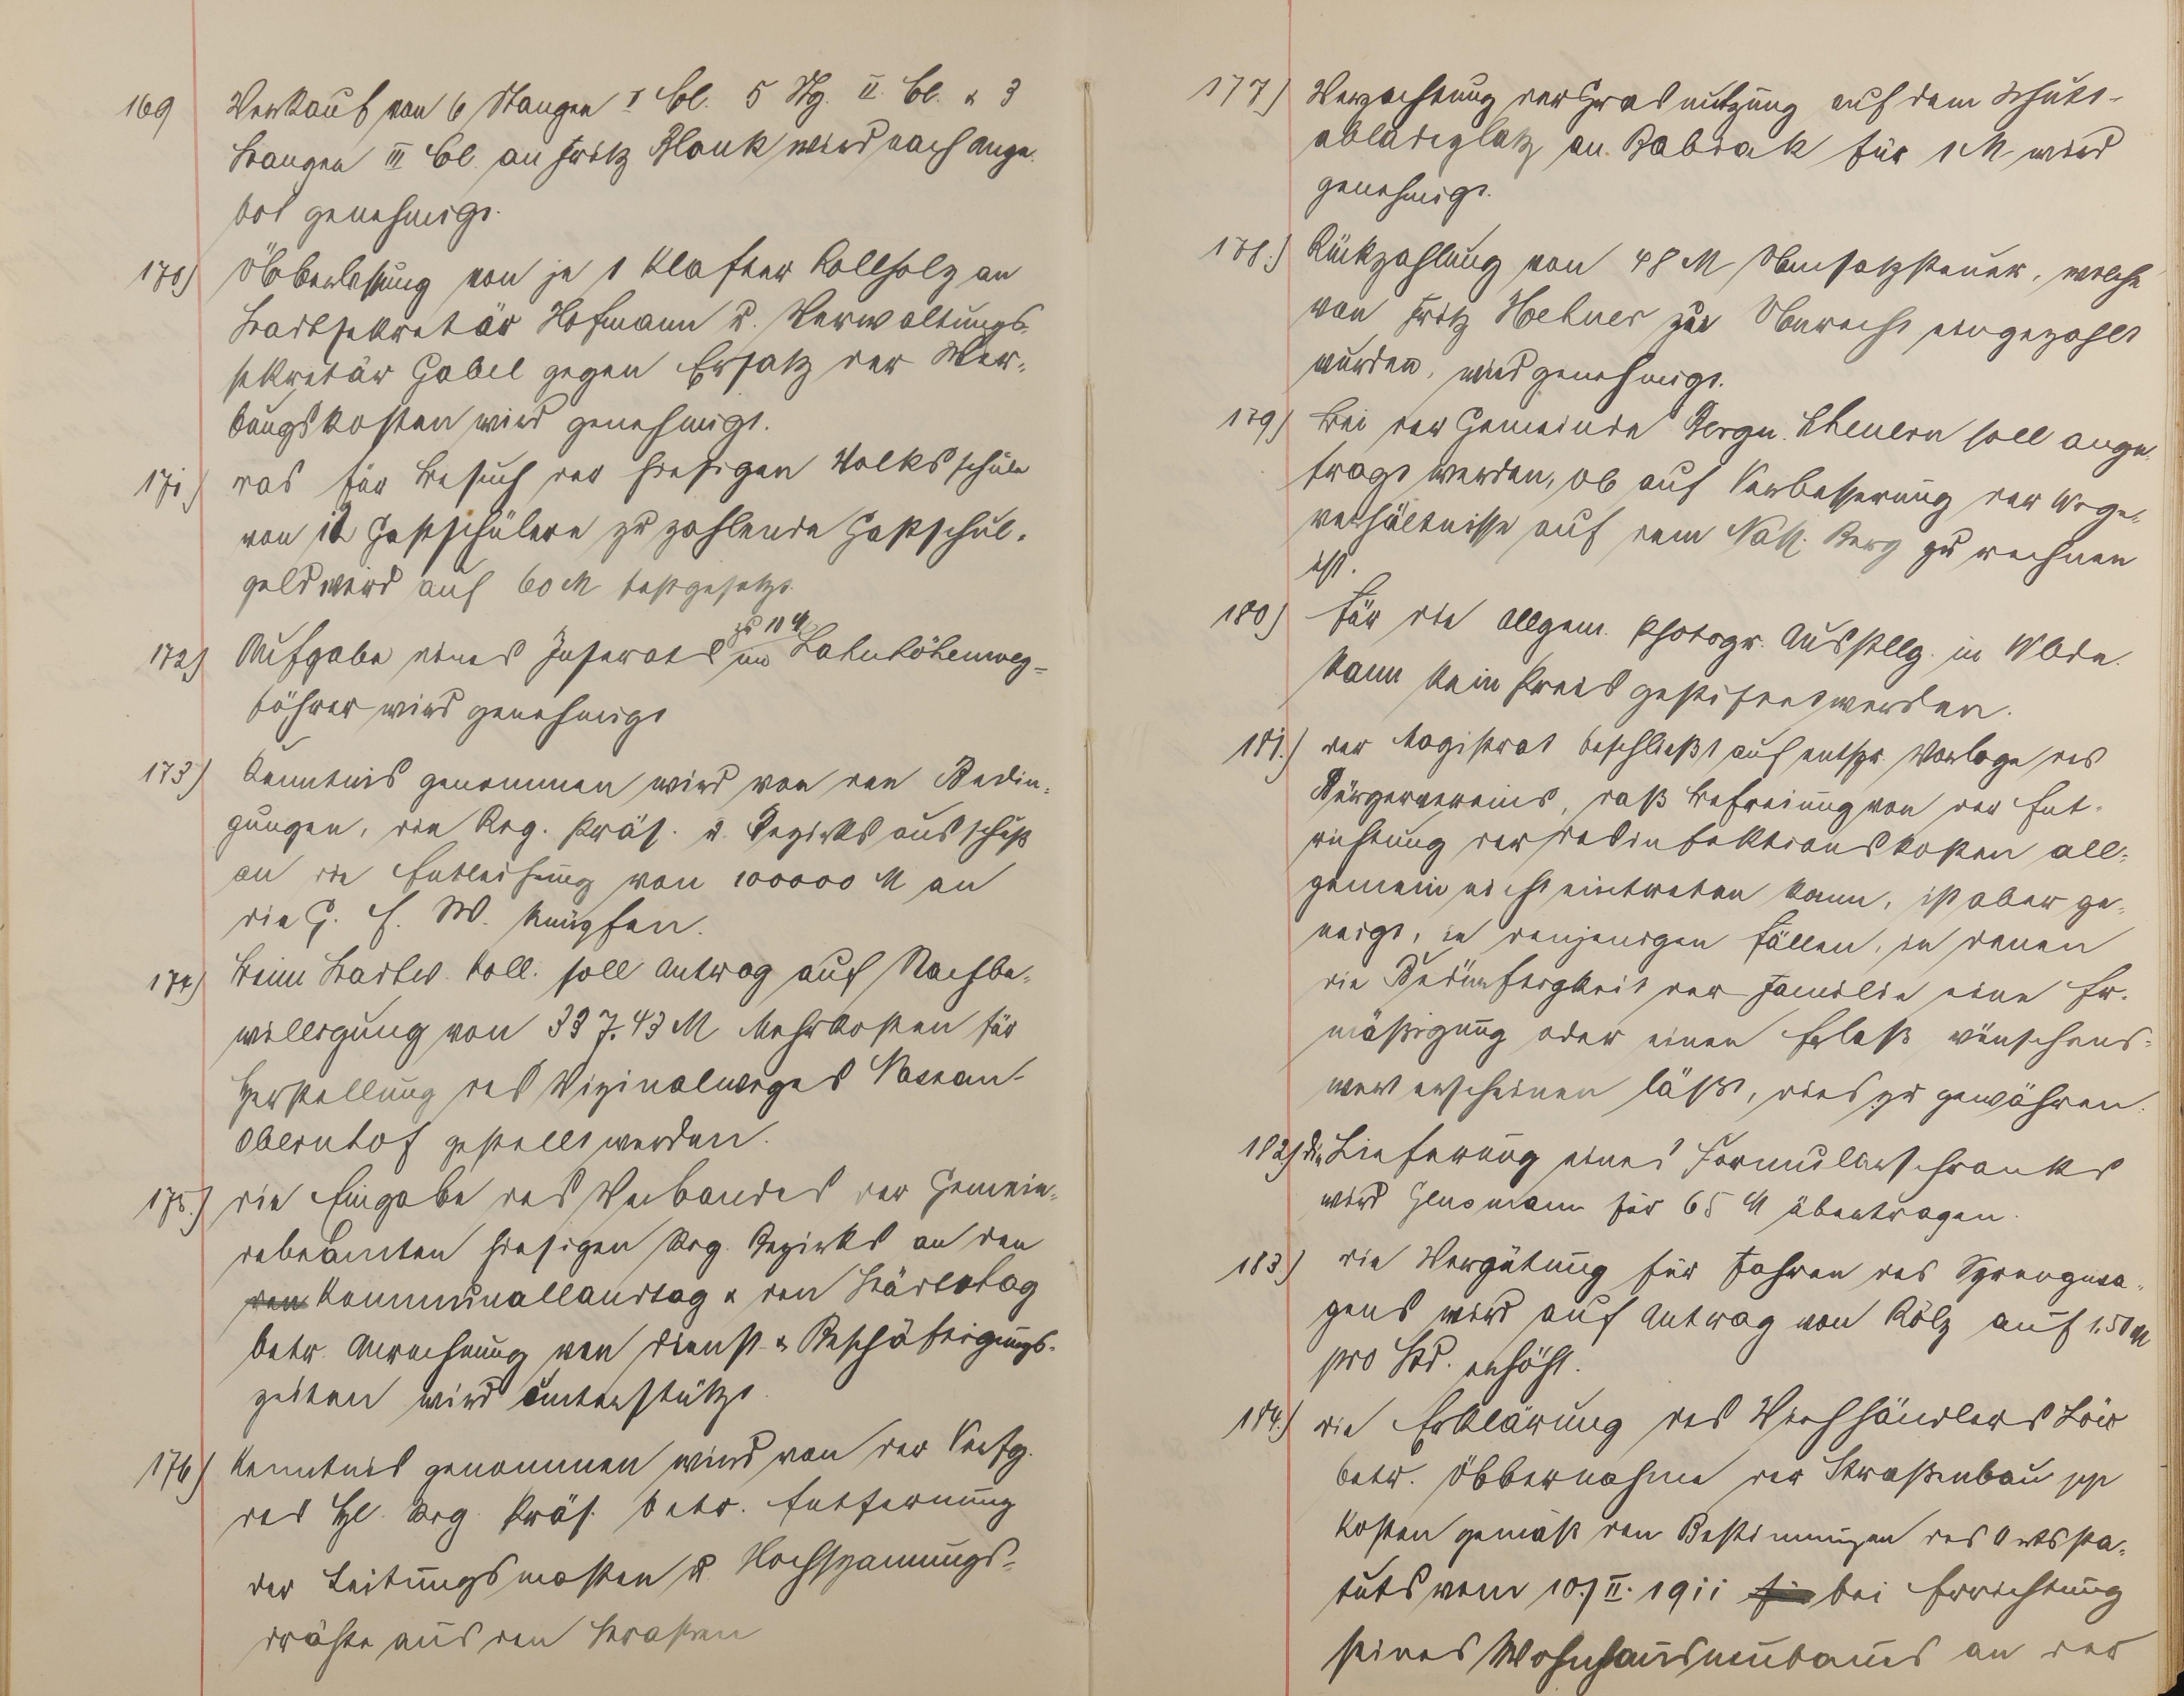 169 Verkauf von 6 Stangen I Cl. 5 Stg. II. Cl. & 3
Stangen III Cl. an Fritz Plank wird nach Ange-
bot genehmigt.
170) Überlassung von je 1 Klafter Rollholz an
Stadtsekretär Hofmann u. Verwaltungs-
sekretär Gabel gegen Ersatz der Wer-
bungskosten wird genehmigt.
171) das für Besuch der hiesigen Volksschule
von 12 Gastschülern zu zahlende Gastschul-
geld wird auf 60 M festgesetzt.
172) Aufgabe eines Inserats im Lahnhöhenweg-
zu 10 M
führer wird genehmigt
173) Kenntnis genommen wird von den Bedin-
gungen, die Reg. Präs. u. Bezirksausschuß
an die Entleihung von 100000 M an
die G. E. W. knüpfen.
174) Beim Stadtv. Koll. soll Antrag auf Nachbe-
willigung von 337.43 M Mehrkosten für
Herstellung des Vizinalweges Nassau-
Obernhof gestellt werden.
175.) die Eingabe des Verbandes der Gemein-
debeamten hiesigen Reg. Bezirks an den
den Kommunallandtag & den Städtetag
betr. Anrechnung von Dienst- & Beschäftigungs-
zeiten wird unterstützt.
176) Kenntnis genommen wird von der Verfg.
des H. Reg. Präs. betr. Entfernung
der Leitungsmasten u. Hochspannungs-
drähte aus den Straßen
177) Verpachtung der Grasnutzung auf dem Schutt-
abladeplatz an Babiak für 1 M wird
genehmigt.
178.) Rückzahlung von 48 M Umsatzsteuer, welche
von Fritz Hetner zu Unrecht eingezahlt
wurden, wird genehmigt.
179) Bei der Gemeinde Bergn. Scheuern soll ange-
fragt werden, ob auf Verbesserung der Wege-
verhältnisse auf dem Nass. Berg zu rechnen
ist.
180) Für die allgem. Photogr. Ausstllg. in Wbdn.
kann kein Preis gestiftet werden.
181.) der Magistrat beschließt auf entspr. Vorlage des
Bürgervereins, daß Befreiung von der Ent-
richtung der Desinfektionskosten all-
gemein nicht eintreten kann, ist aber ge-
neigt, in denjenigen Fällen, in denen
die Bedürftigkeit der Familie eine Er-
mäßigung oder einen Erlaß wünschens-
wert erscheinen läßt, dies zu gewähren.
182.) die Lieferung eines Formularschranks
wird Heusmann für 65 M übertragen.
183.) die Vergütung für Fahren des Sprengwa-
gens wird auf Antrag von Kölz auf 1.50 M
pro Std. erhöht.
184.) die Erklärung des Viehhändlers Löw
betr. Übernahme der Straßenbau pp
Kosten gemäß den Bestimmungen des Ortssta-
tuts vom 10./II. 1911 bei Errichtung
seines Wohnhausneubaues an der